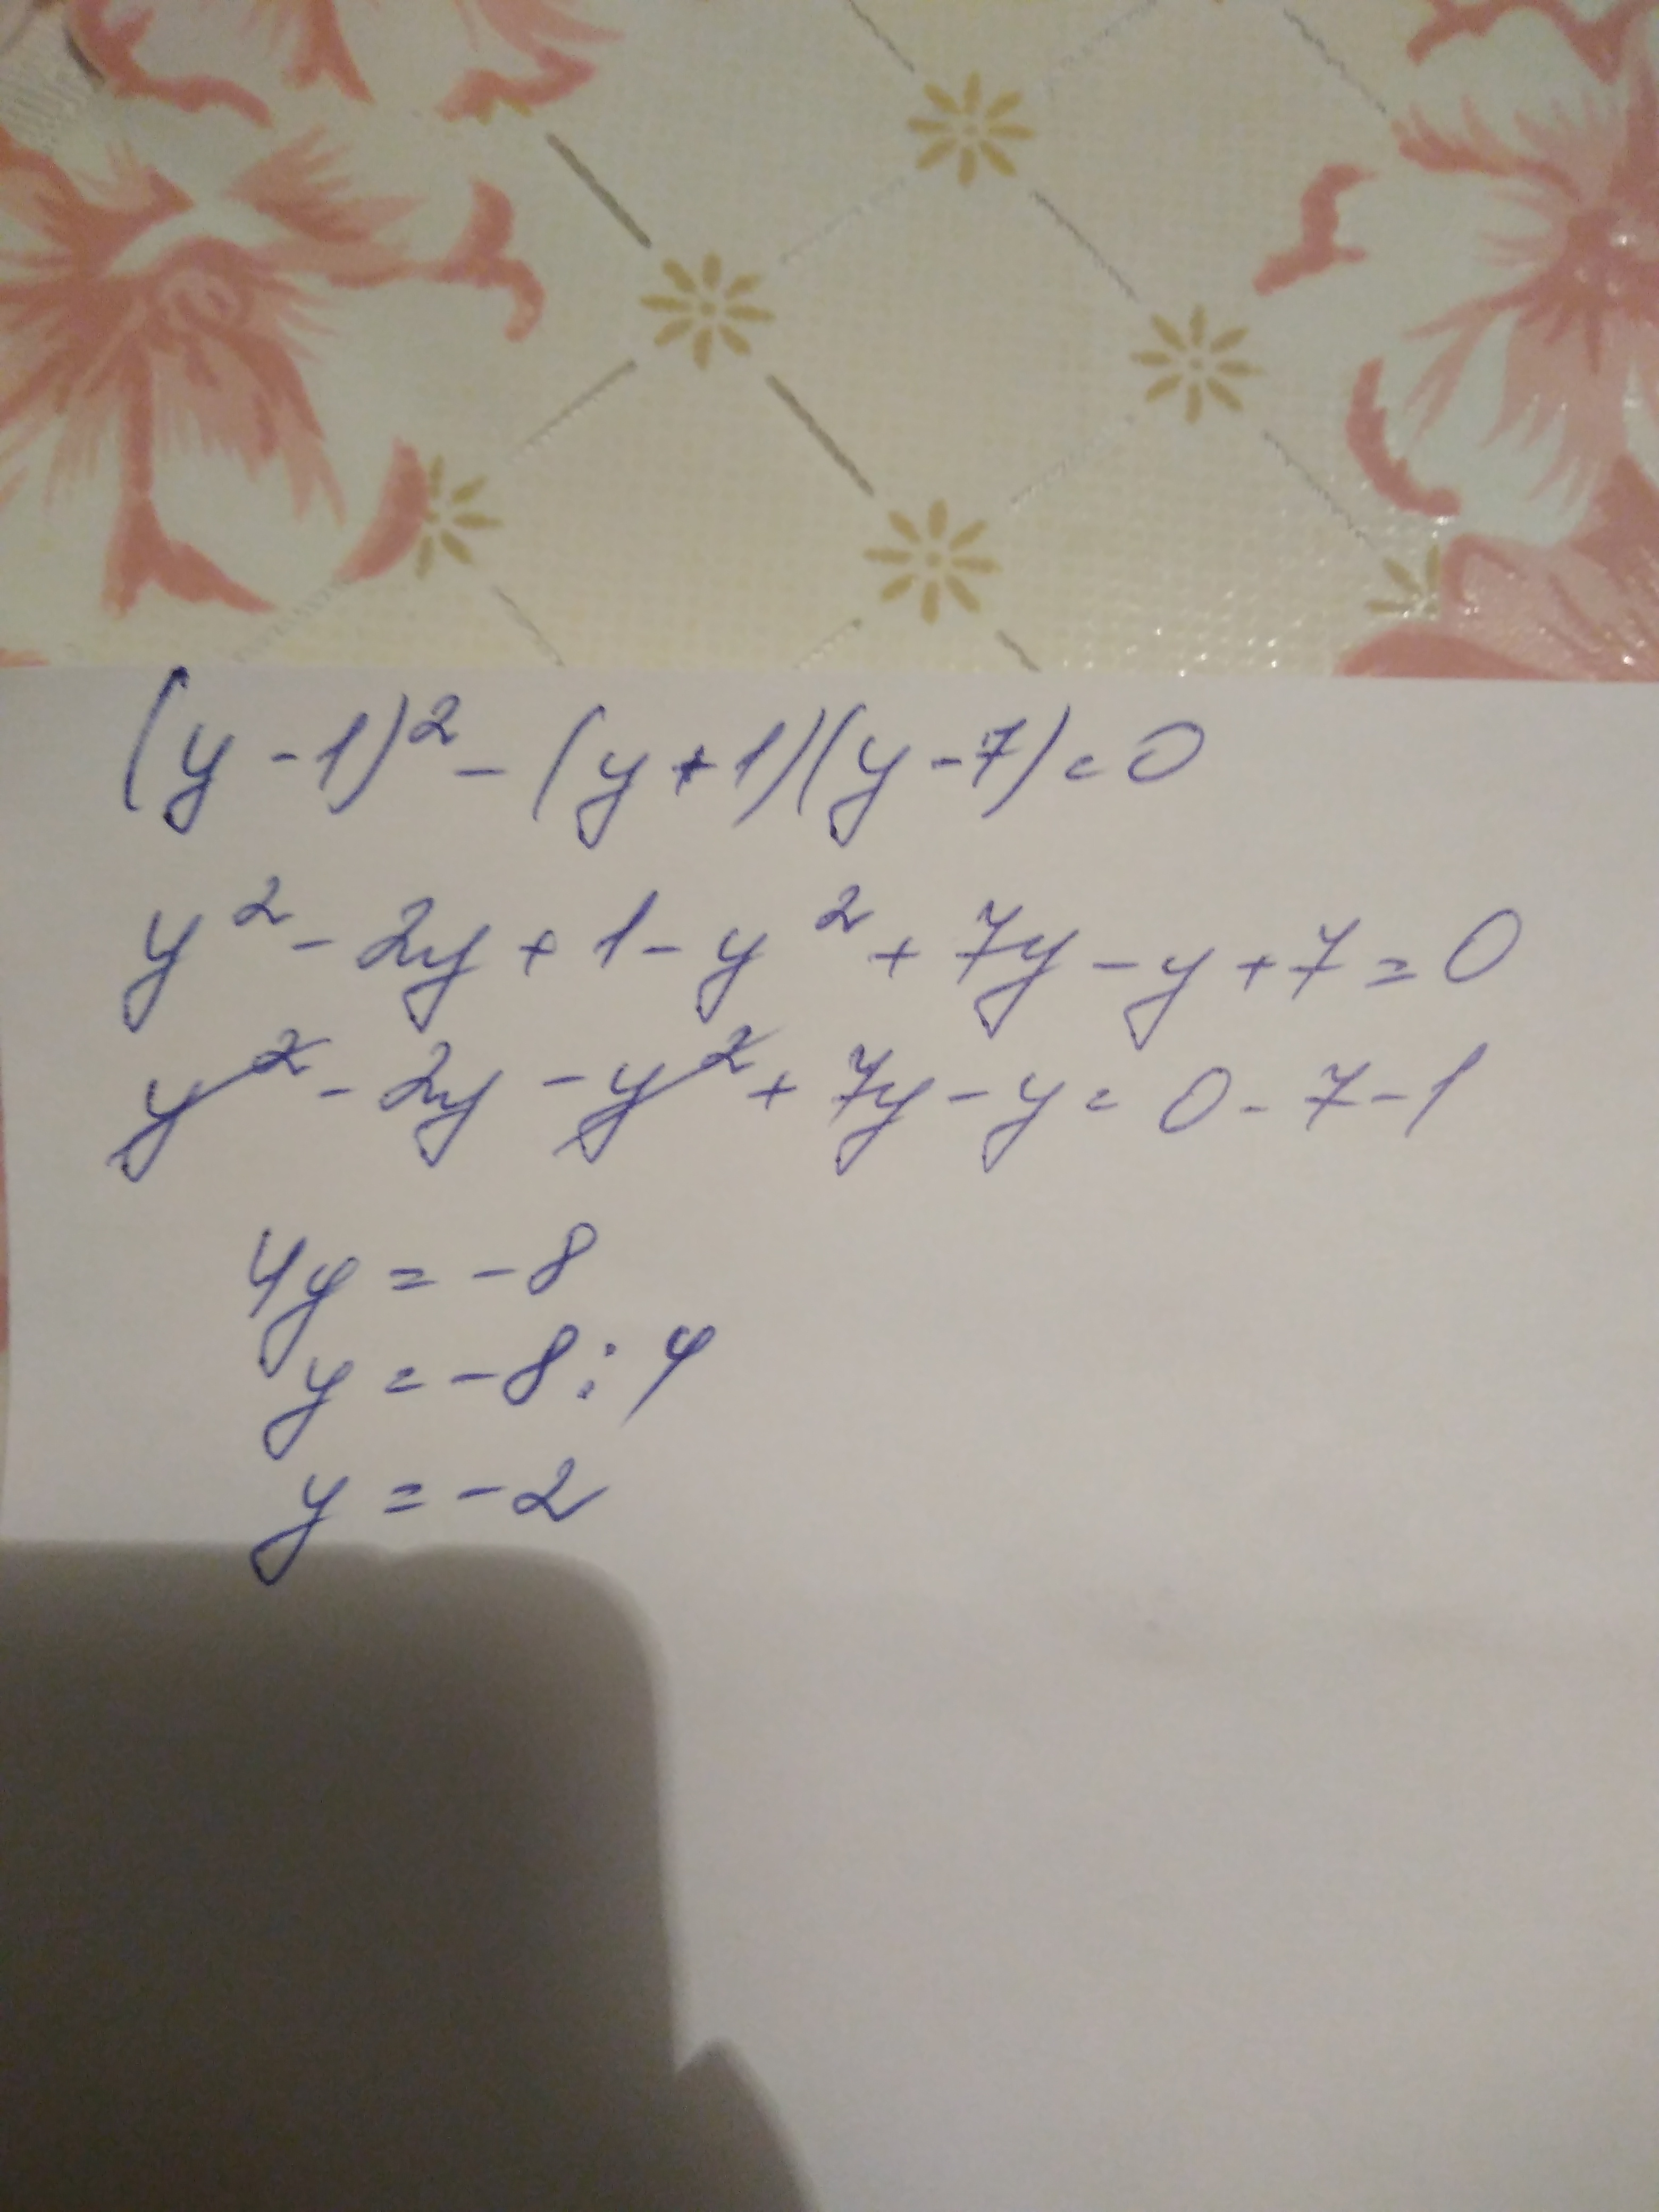 (y - 1)² - (y + 1)(y - 7) = 0
y² - 2y + 1 - y² + 7y - y + 7 = 0
y² - 2y - y² + 7y - y = 0 - 7 - 1
4y = - 8
y = - 8 : 4
y = - 2